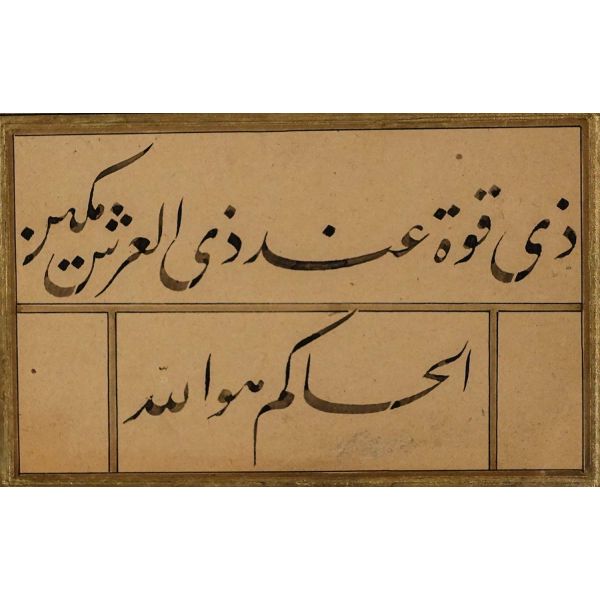 ذى قوة عند ذى العرش مكين
الحاكم هو الله